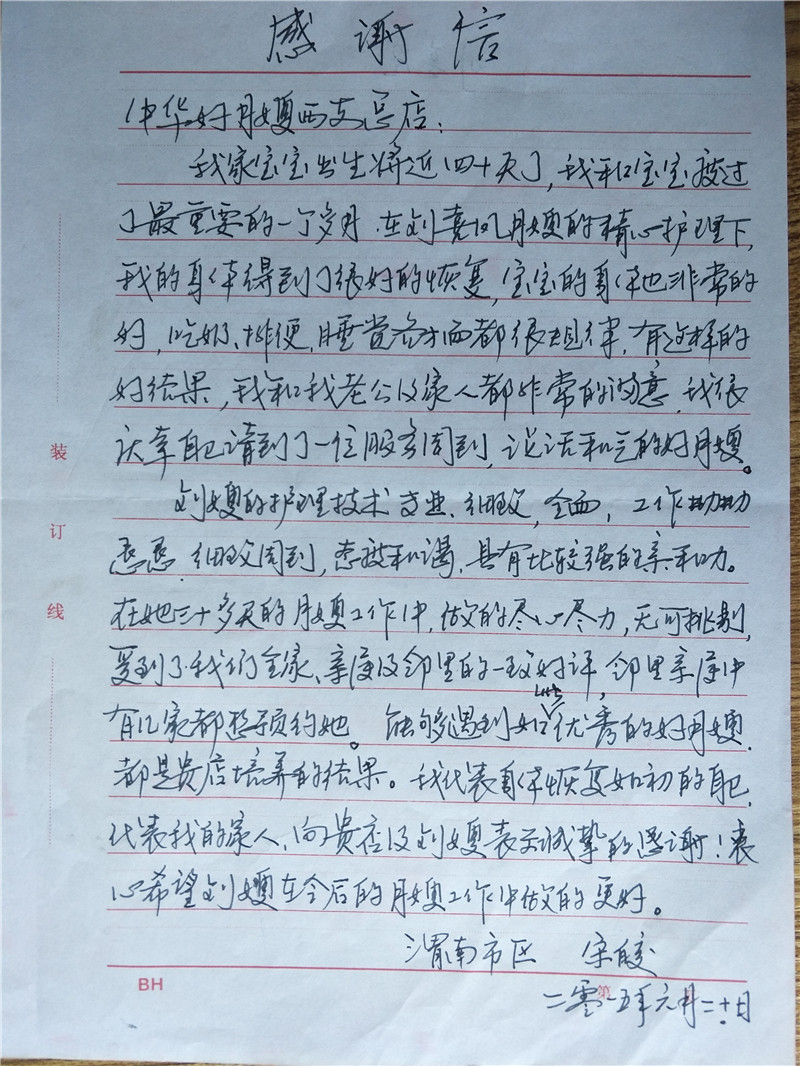 感谢信
中华好月嫂西安总店：
我家宝宝出生将近四十天了，我和宝宝度过
了最重要的一个多月，在刘喜凤月嫂的精心护理下，
我的身体得到了很好的恢复，宝宝的身体也非常的
好，吃奶、排便、睡觉各方面都很规律，有这样的
好结果，我和我老公及家人都非常的满意，我很
庆幸自己请到了一位服务周到，说话和气的好月嫂。
刘嫂的护理技术专业、细致，全面，工作勤勤
恳恳、细致周到，态度和谒，具有比较强的亲和力。
在她三十多天的月嫂工作中，做的尽心尽力，无可挑剔，
受到了我们全家、亲戚及邻里的一致好评，邻里亲戚中
有几家都想预约她。能够遇到如此优秀的好月嫂，
都是贵店培养的结果。我代表身体恢复如初的自己，
代表我的家人，向贵店及刘嫂表示诚挚的感谢！衷
心希望刘嫂在今后的月嫂工作中做的更好。
渭南市区
二零一五年元月二十日
装
订
线
BH
第